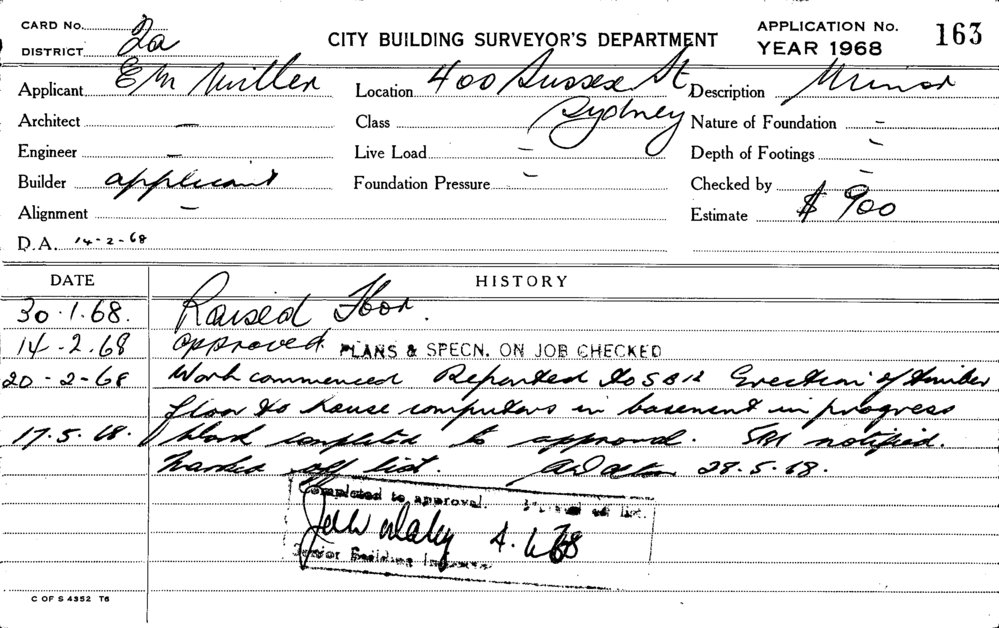 CARD No.
DISTRICT 2a
CITY BUILDING SURVEYOR'S DEPARTMENT
APPLICATION No. 163
YEAR 1968
Applicant E M Miller
Location 400 Sussex St
Sydney
Description Minor
Architect —
Class
Nature of Foundation –
Engineer –
Live Load –
Depth of Footings –
Builder applicant
Foundation Pressure –
Checked by –
Alignment –
Estimate $ 900
D.A. 14-2-68
DATE HISTORY
30.1.68. Raised Floor.
14.2.68 Approved PLANS & SPECN. ON JOB CHECKED
20-2-68 Work commenced Reported to Erection of timber
floor to house computors in basement in progress
17.5.68. Work completed to approval. notified.
Marked off list. 28.5.68.
Completed to approval. Marked off list.
4.6.68
Junior Building Inspector
C OF S 4352 T6